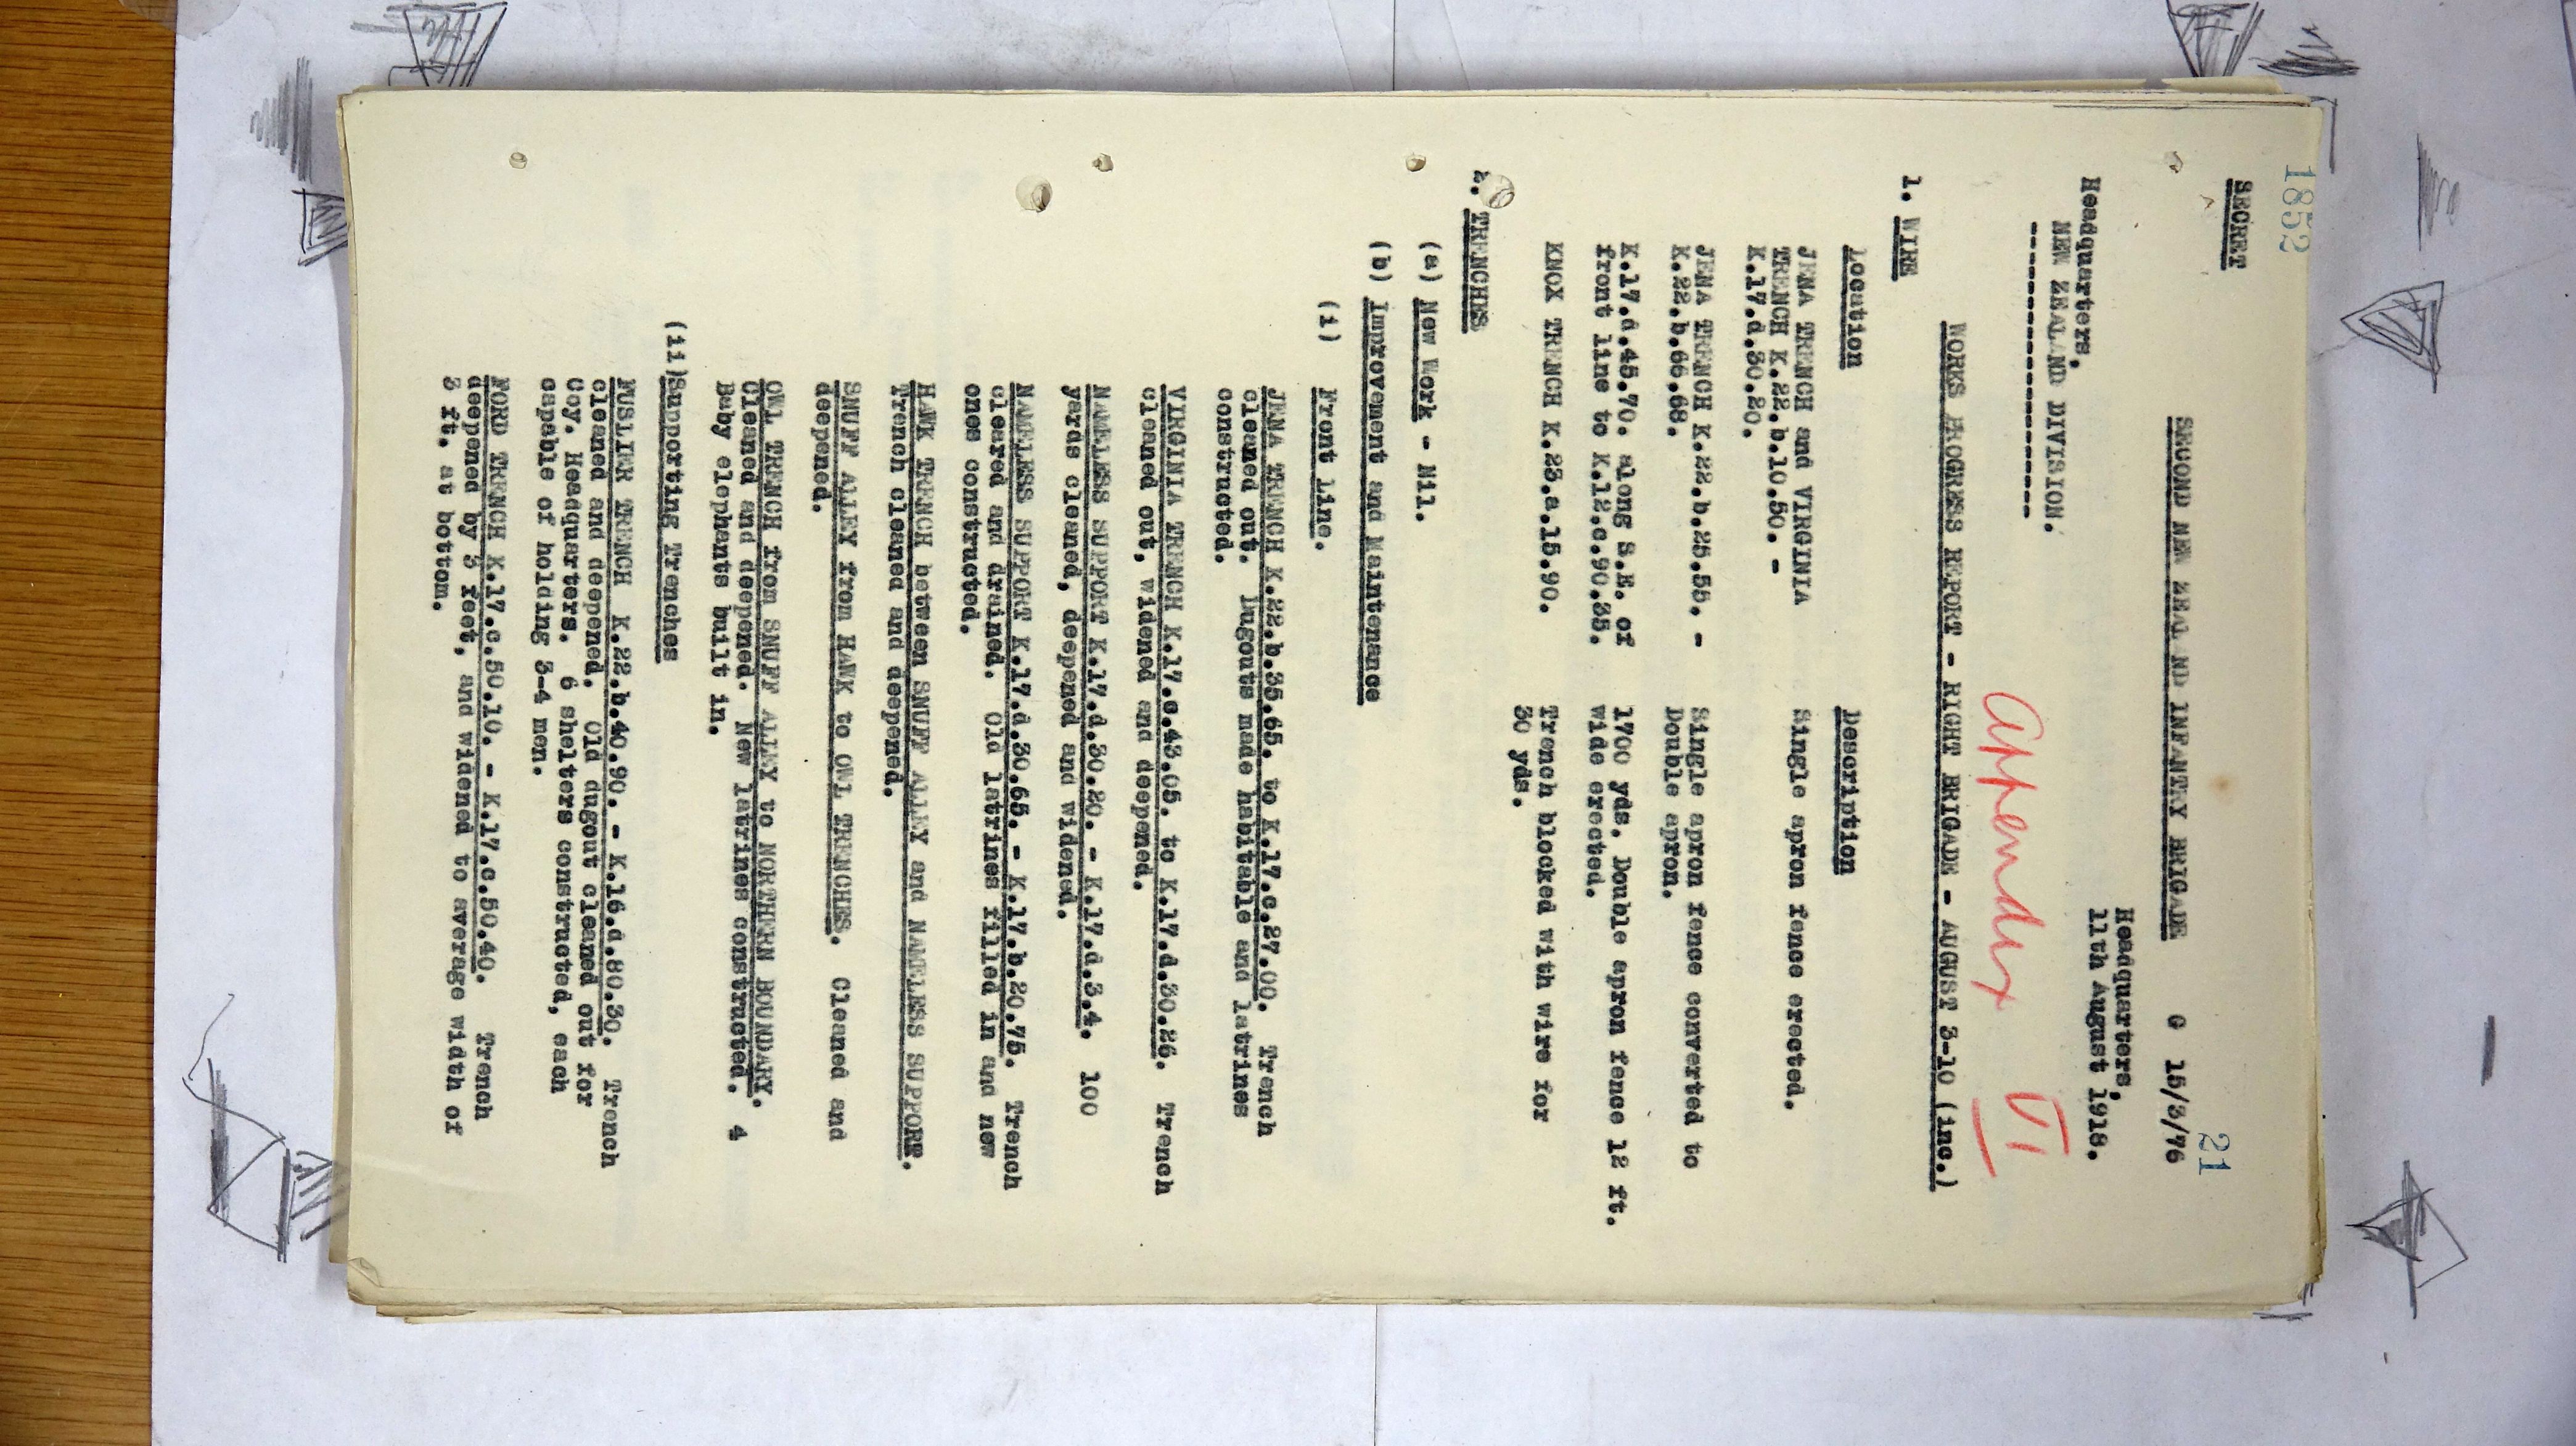 1852
SECRET
21
SECOND NEW ZEALAND INFANTRY BRIGADE G 15/3/76
Headquarters,
11th August 1918.
Headquarters,
NEW ZEALAND DIVISION.
-------------------------
Appendix VI
WORKS PROGRESS REPORT - RIGHT BRIGADE - AUGUST 3-10 (inc.)
1. WIRE
Location Description
JENA TRENCH and VIRGINIA Single apron fence erected.
TRENCH K.22.b.10.50. -
K.17.d.30.20.
JENA TRENCH K.22.b.25.55. - Single apron fence converted to
K.22.b.66.68. Double apron.
K.17.d.45.70. along S.E. of 1700 yds. Double apron fence 12 ft.
front line to K.12.c.90.35. wide erected.
KNOX TRENCH K.23.a.15.90. Trench blocked with wire for
30 yds.
2. TRENCHES
(a) New Work - Nil.
(b) Improvement and Maintenance
(i) Front line.
JENA TRENCH K.22.b.35.65. to K.17.c.27.00. Trench
cleaned out. Dugouts made habitable and latrines
constructed.
VIRGINIA TRENCH K.17.c.43.05. to K.17.d.30.26. Trench
cleaned out, widened and deepened.
NAMELESS SUPPORT K.17.d.30.20. - K.17.d.3.4. 100
yards cleaned, deepened and widened.
NAMELESS SUPPORT K.17.d.30.65. - K.17.b.20.75. Trench
cleared and drained. Old latrines filled in and new
ones constructed.
HAWK TRENCH between SNUFF ALLEY and NAMELESS SUPPORT.
Trench cleaned and deepened.
SNUFF ALLEY from HAWK to OWL TRENCHES. Cleaned and
deepened.
OWL TRENCH from SNUFF ALLEY to NORTHERN BOUNDARY.
Cleaned and deepened. New latrines constructed. 4
Baby elephants built in.
(ii)Supporting Trenches
FUSLIER TRENCH K.22.b.40.90. - K.16.d.80.30. Trench
cleaned and deepened. Old dugout cleaned out for
Coy. Headquarters. 6 shelters constructed, each
capable of holding 3-4 men.
FORD TRENCH K.17.c.50.10. - K.17.c.50.40. Trench
deepened by 3 feet, and widened to average width of
3 ft. at bottom.